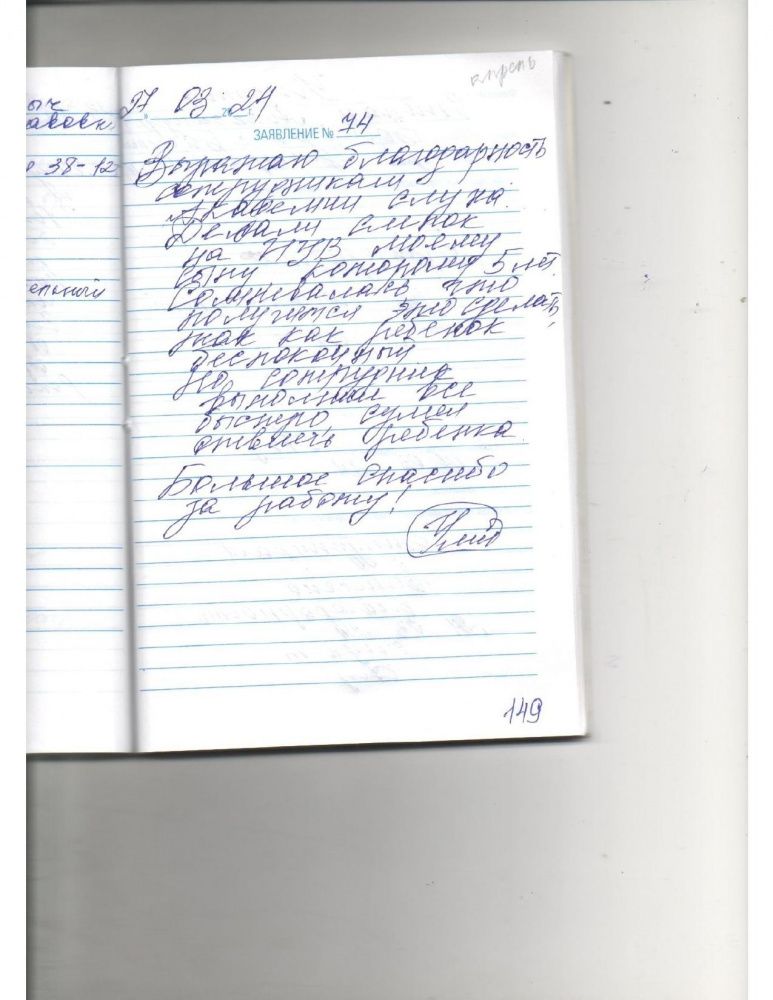 апрель
27 03 24
ЗАЯВЛЕНИЕ № 74
Выражаю благодарность
сотрудникам
Академии слуха.
Делали слепок
на ИУВ моему
сыну которому 5 лет.
Сомневалась что
получится это сделать,
так как ребенок
беспокойный
Но сотрудник
выполнил все
быстро, сумел
отвлечь ребенка.
Большое спасибо
за работу!
149
38-12